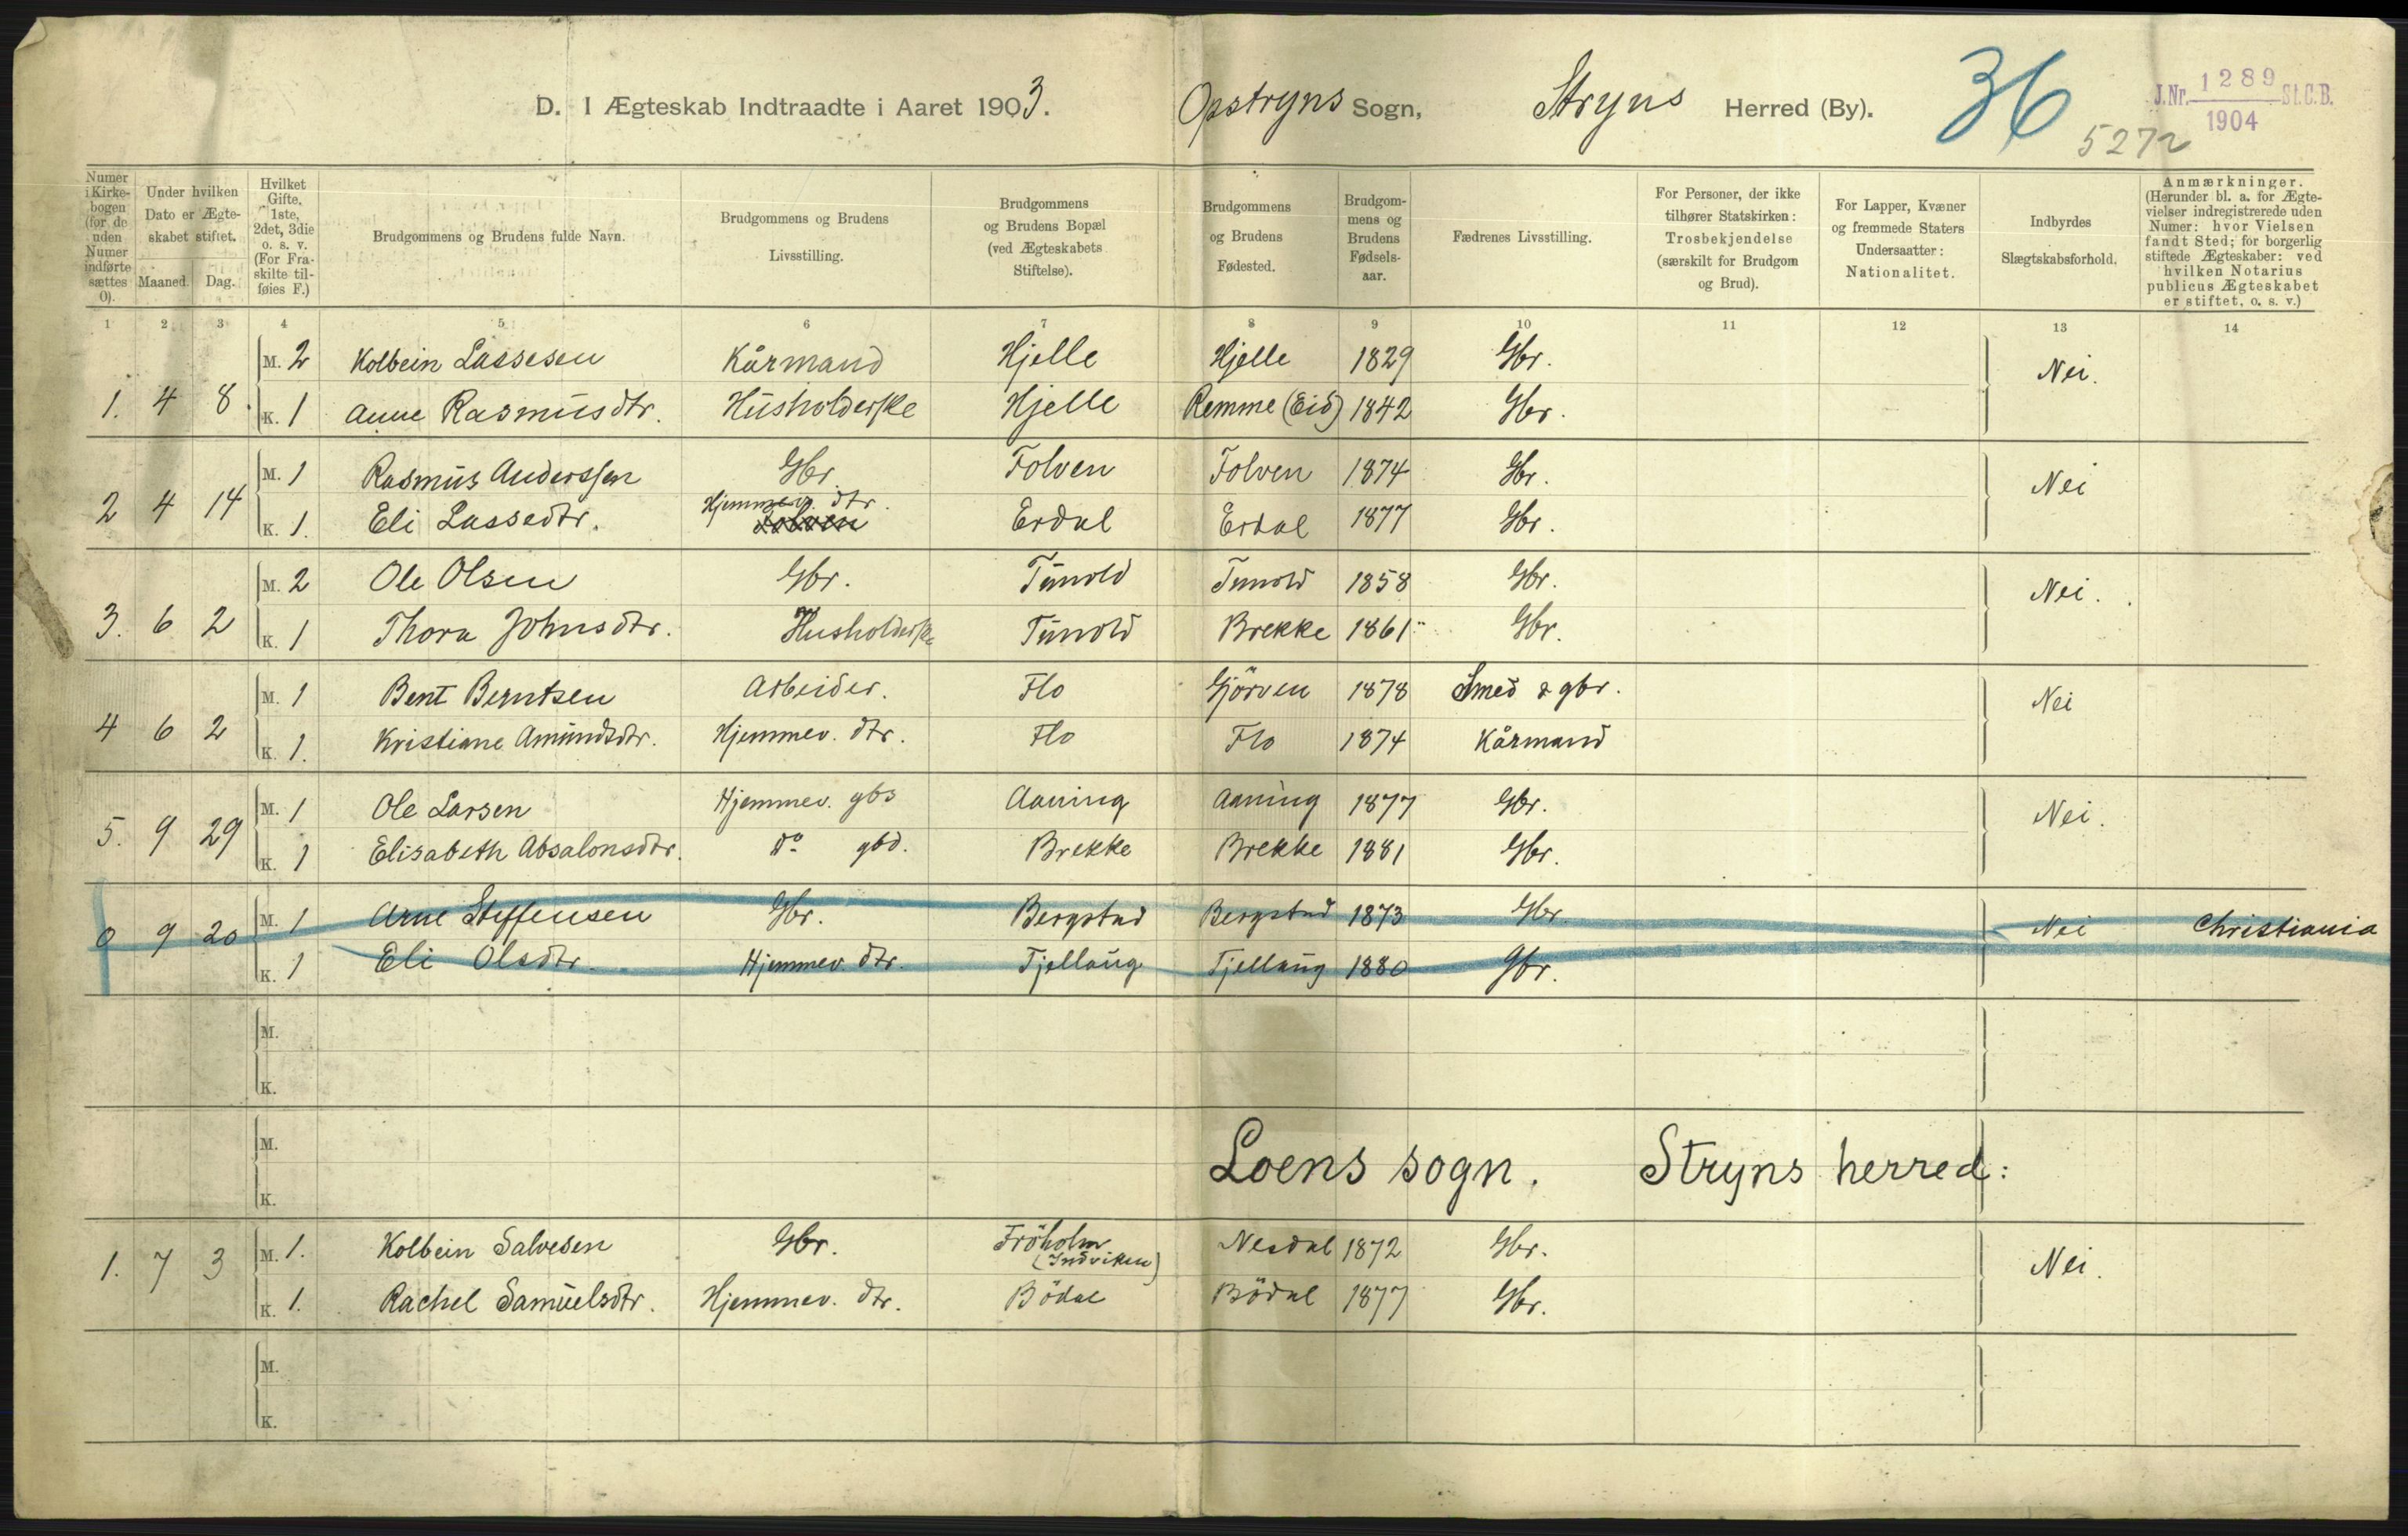 D. I Ægteskab Indtraadte i Aaret 1903. Opstryns Sogn, Stryns Herred (By). 36
J.Nr. 1289 St.C.B.
1904
5272
Numer i Kirkebogen (for de uden Numer indførte sættes 0). | Under hvilken Dato er Ægteskabet stiftet. Maaned. Dag. | Hvilket Gifte, 1ste, 2det, 3die o. s. v. (For Fraskilte tilføies F.) | Brudgommens og Brudens fulde Navn. | Brudgommens og Brudens Livsstilling. | Brudgommens og Brudens Bopæl (ved Ægteskabets Stiftelse). | Brudgommens og Brudens Fødested. | Brudgommens og Brudens Fødselsaar. | Fædrenes Livsstilling. | For Personer, der ikke tilhører Statskirken: Trosbekjendelse (særskilt for Brudgom og Brud). | For Lapper, Kvæner og fremmede Staters Undersaatter: Nationalitet. | Indbyrdes Slægtskabsforhold. | Anmærkninger. (Herunder bl. a. for Ægtevielser indregistrerede uden Numer: hvor Vielsen fandt Sted; for borgerlig stiftede Ægteskaber: ved hvilken Notarius publicus Ægteskabet er stiftet, o. s. v.)
1 2 3 4 5 6 7 8 9 10 11 12 13 14
M. 2 Kolbein Lassesen Kårmand Hjelle Hjelle 1829 Gbr. Nei.
1. 4 8. K. 1 Anne Rasmusdtr. Husholderske Hjelle Remme (Eid) 1842 Gbr.
M. 1 Rasmus Anderssen Gbr. Folven Folven 1874 Gbr. Nei
2 4 14 K. 1. Eli Lassedtr. Hjemmev. dtr. Folven Erdal Erdal 1877 Gbr.
M. 2 Ole Olsen Gbr. Tunold Tunold 1858 Gbr. Nei.
3. 6 2 K. 1 Thora Johnsdtr. Husholderske Tunold Brekke 1861 Gbr.
M. 1 Bent Berntsen Arbeider. Flo Gjörven 1878 Smed & gbr. Nei
4 6 2 K. 1. Kristiane Amundsdtr. Hjemmev. dtr. Flo Flo 1874 Kårmand
M. 1 Ole Larsen Hjemmev. gbs Aaning Aaning 1877 Gbr. Nei.
5. 9 29 K. 1 Elisabeth Absalonsdtr. do gbd. Brekke Brekke 1881 Gbr.
M. 1 Arne Steffensen Gbr. Bergstad Bergstad 1873 Gbr. Nei Christiania
0 9 20 K. 1 Eli Olsdtr. Hjemmev. dtr. Tjellaug Tjellaug 1880 Gbr.
M.
K.
M.
K.
Loens sogn. Stryns herred:
M. 1. Kolbein Salvesen Gbr. Fröholm (Indviken) Nesdal 1872 Gbr. Nei.
1. 7 3 K. 1. Rachel Samuelsdtr. Hjemmev. dtr. Bödal Bödal 1877 Gbr.
M.
K.